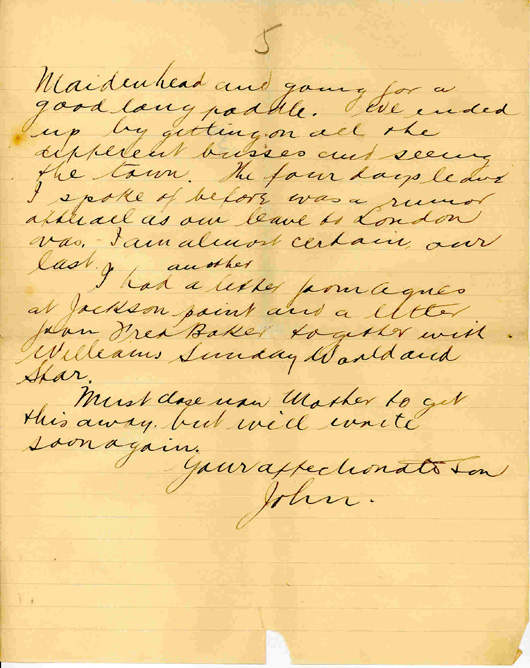 5
Maidenhead and going for a
good long paddle. We ended
up by getting on all the
different busses and seeing
the town. The four days leave
I spoke of before was a rumor
as our leave to London
was, I am almost certain, our
last.
another
I had a letter from Agnes
at Jackson point and a letter
from Fred Baker together with
Williams Sunday World and
Star.
Must close now Mother to get
this away but will write
soon again.
Your affectionate son
John.